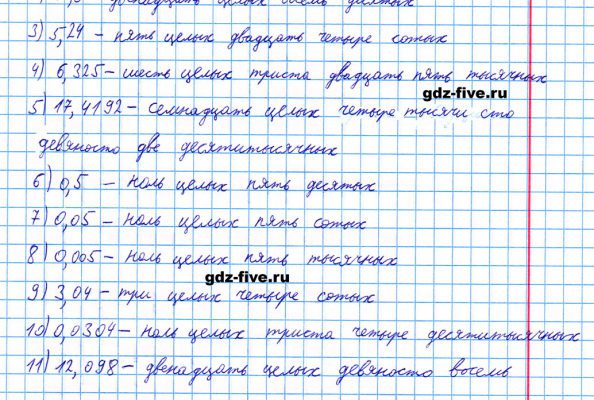 двенадцать целых восемь десятых
3) 5,24 – пять целых двадцать четыре сотых
4) 6,325 – шесть целых триста двадцать пять тысячных
gdz-five.ru
5) 17,4192 – семнадцать целых четыре тысячи сто
девяносто две десятитысячных
6) 0,5 – ноль целых пять десятых
7) 0,05 – ноль целых пять сотых
8) 0,005 – ноль целых пять тысячных
gdz-five.ru
9) 3,04 – три целых четыре сотых
10) 0,0304 – ноль целых триста четыре десятитысячных
11) 12,098 – двенадцать целых девяносто восемь